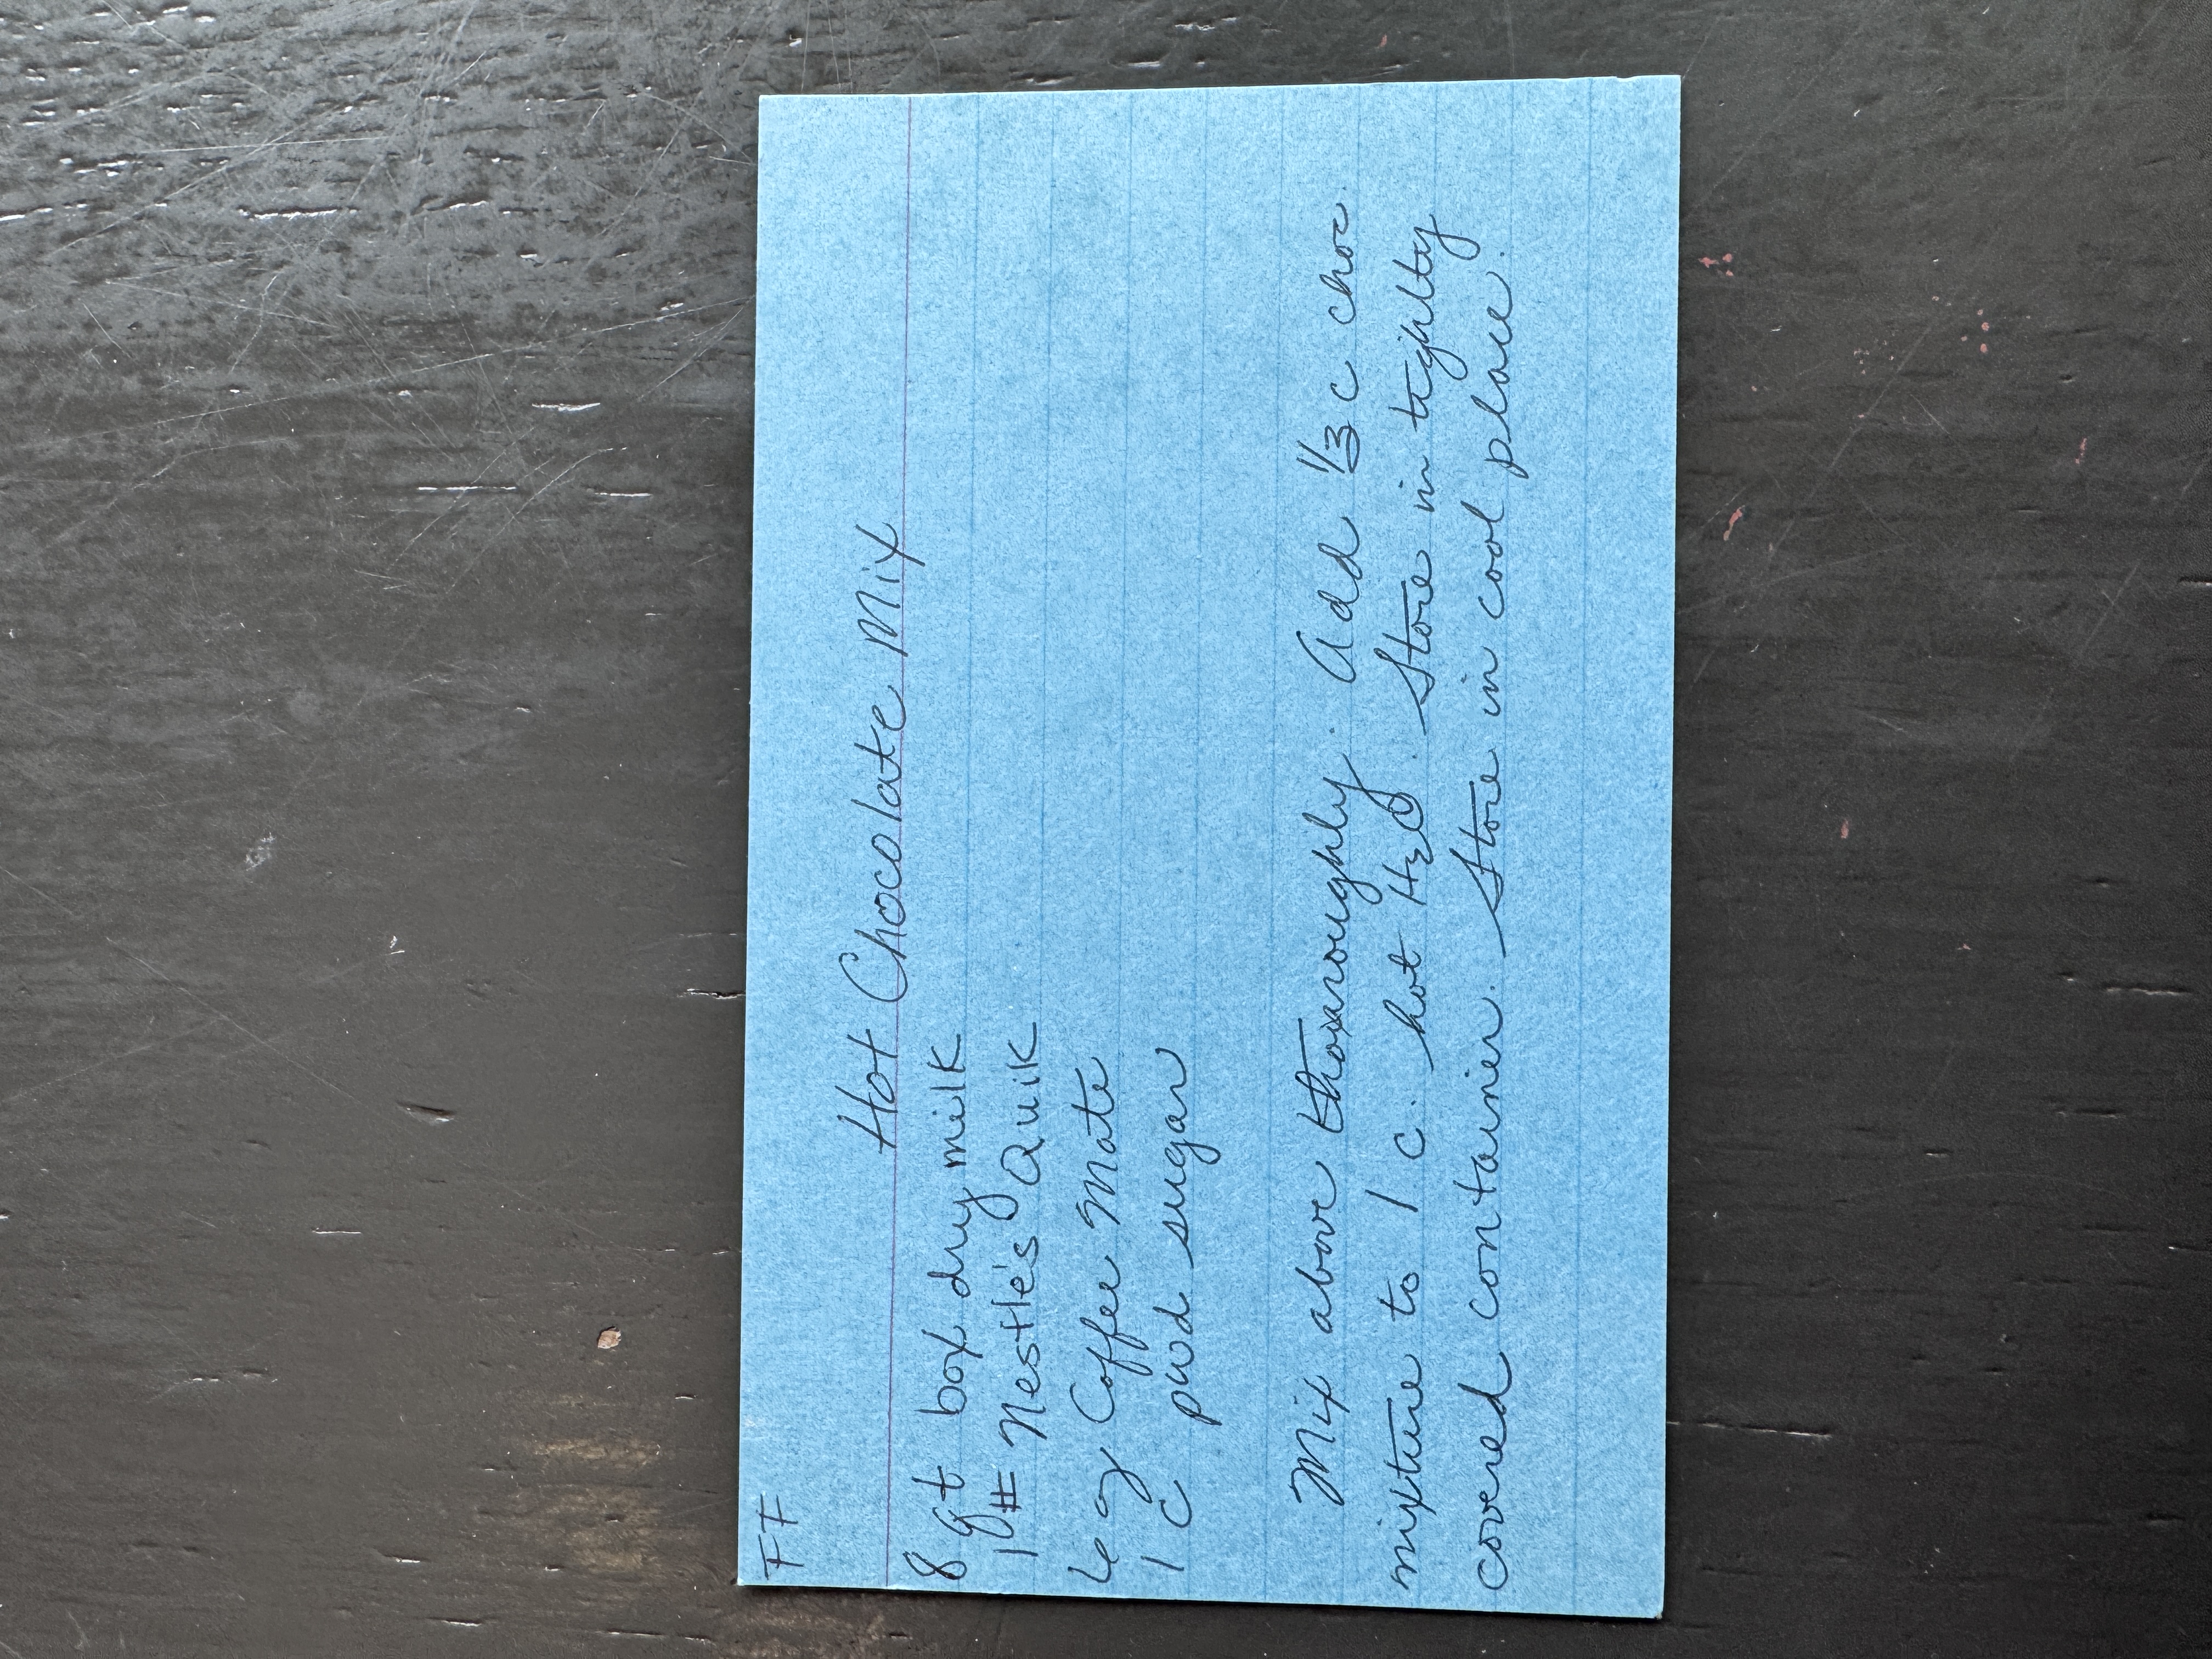 FF
Hot Chocolate Mix
8 qt box dry milk
1# Nestle's Quik
6 oz Coffee Mate
1 c pwd sugar
Mix above thoroughly. Add 1/3 c choc.
mixture to 1 c. hot H2O. Store in tightly
covered container. Store in cool place.